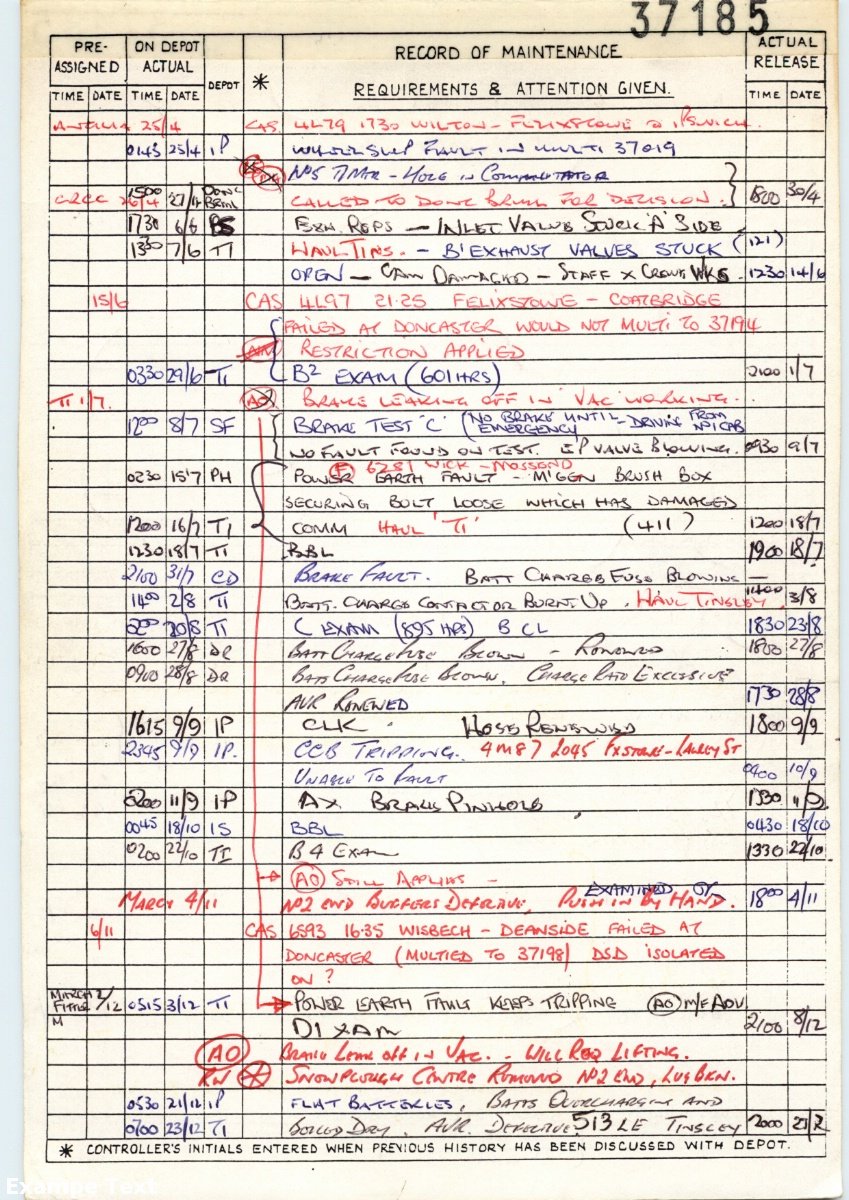 37185
PRE-ASSIGNED ON DEPOT ACTUAL DEPOT * RECORD OF MAINTENANCE REQUIREMENTS & ATTENTION GIVEN. ACTUAL RELEASE
TIME DATE TIME DATE TIME DATE
25/4 CAS 4L79 1730 WILTON - FELIXSTOWE @ IPSWICH.
0145 25/4 IP WHEELSLIP FAULT IN MULTI 37019
Nº5 T/MTR - HOLE IN COMMUTATOR
CRCC 26/4 1500 27/4 DONC CALLED TO DONC FOR DECISION. 1800 30/4
1730 6/6 EXH. REPS - INLET VALVE STUCK 'A' SIDE
1330 7/6 TI HAUL TINS. - B' EXHAUST VALVES STUCK (121)
OPEN - CAM DAMAGED - STAFF X CREWE WKS. 1230 14/6
15/6 CAS 4L97 21.25 FELIXSTOWE - COATBRIDGE
FAILED AT DONCASTER WOULD NOT MULTI TO 37194
RESTRICTION APPLIED
0330 29/6 TI B2 EXAM (601 HRS) 2100 1/7
TI 1/7. AO BRAKE LEAKING OFF IN 'VAC' WORKING.
1200 8/7 SF BRAKE TEST 'C' (NO BRAKE UNTIL EMERGENCY - DRIVING FROM Nº1 CAB
NO FAULT FOUND ON TEST. EP VALVE BLOWING. 0930 9/7
F 6281 WICK - MOSSEND
0230 15/7 PH POWER EARTH FAULT - M'GEN BRUSH BOX
SECURING BOLT LOOSE WHICH HAS DAMAGED
1200 16/7 TI COMM HAUL 'TI' (411) 1200 18/7
1230 18/7 TI BBL 1900 18/7
2100 31/7 CD BRAKE FAULT. BATT CHARGE FUSE BLOWING -
1400 2/8 TI BATT. CHARGE CONTACTOR BURNT UP. HAUL TINSLEY. 1400 3/8
0200 20/8 TI C EXAM (895 HRS) B CL 1830 23/8
1600 27/8 DR BATT CHARGE FUSE BLOWN - RENEWED 1800 27/8
0900 28/8 DR BATT CHARGE FUSE BLOWN. CHARGE RATE EXCESSIVE
AVR RENEWED 1730 28/8
1615 9/9 IP CLK. HOSE RENEWED 1800 9/9
2345 9/9 IP. CCB TRIPPING. 4M87 2045 FXSTOWE - LAWLEY ST
UNABLE TO FAULT 0400 10/9
0200 11/9 IP AX BRAKE PINHOLE 1330 11/9
0045 18/10 IS BBL 0430 18/10
0200 22/10 TI B4 EXAM 1330 22/10
AO STILL APPLIES -
EXAMINED
MARCH 4/11 Nº2 END BUFFERS DEFECTIVE, PUSH IN BY HAND. 1800 4/11
6/11 CAS 6S93 16.35 WISBECH - DEANSIDE FAILED AT
DONCASTER (MULTIED TO 37198) DSD ISOLATED
ON ?
MARCH FITTER 2/12 0515 3/12 TI POWER EARTH FAULT KEEPS TRIPPING AO M/E ADV
M D1 XAM 2100 8/12
AO BRAKE LEAK OFF IN VAC. - WILL REQ LIFTING.
RN SNOWPLOUGH CENTRE REMOVED Nº2 END, LUG BKN.
0530 21/12 IP FLAT BATTERIES, BATTS OVERCHARGING AND
0700 23/12 TI BOILED DRY. AVR DEFECTIVE 513 LE TINSLEY 2000
* CONTROLLER'S INITIALS ENTERED WHEN PREVIOUS HISTORY HAS BEEN DISCUSSED WITH DEPOT.
Exampe Text